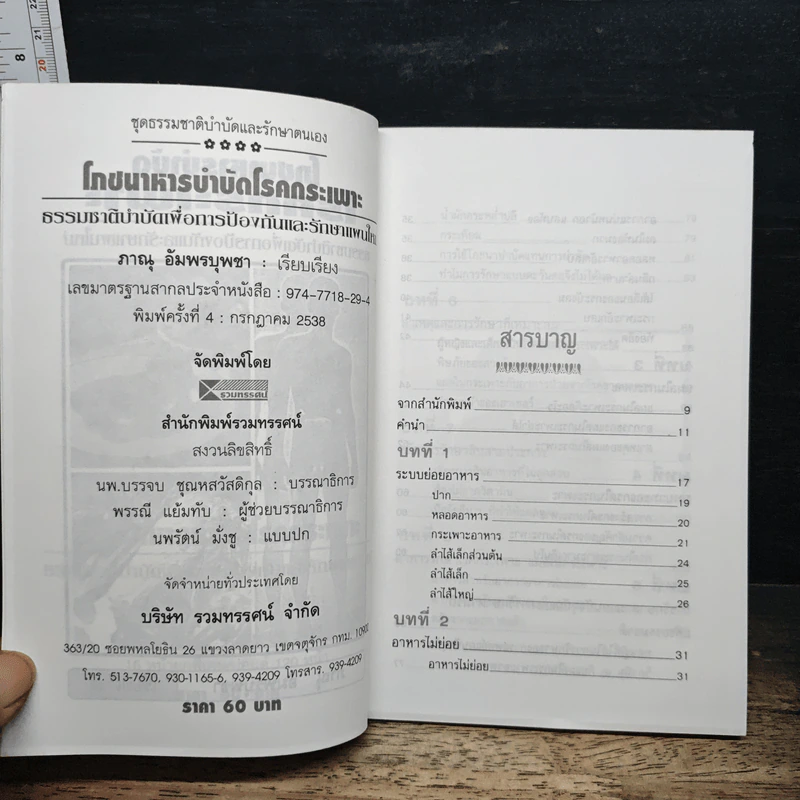 8
20
21
ชุดธรรมชาติบำบัดและรักษาตนเอง
โภชนาหารบำบัดโรคกระเพาะ
ธรรมชาติบำบัดเพื่อการป้องกันและรักษาแผนใหม่
ภาณุ อัมพรบุพชา : เรียบเรียง
เลขมาตรฐานสากลประจำหนังสือ : 974-7718-29-4
พิมพ์ครั้งที่ 4 : กรกฎาคม 2538
จัดพิมพ์โดย
รวมทรรศน์
สำนักพิมพ์รวมทรรศน์
สงวนลิขสิทธิ์
นพ.บรรจบ ชุณหสวัสดิกุล : บรรณาธิการ
พรรณี แย้มทับ : ผู้ช่วยบรรณาธิการ
นพรัตน์ มั่งชู : แบบปก
จัดจำหน่ายทั่วประเทศโดย
บริษัท รวมทรรศน์ จำกัด
363/20 ซอยพหลโยธิน 26 แขวงลาดยาว เขตจตุจักร กทม. 10900
โทร. 513-7670, 930-1165-6, 939-4209 โทรสาร. 939-4209
ราคา 60 บาท
สารบาญ
จากสำนักพิมพ์ 9
คำนำ 11
บทที่ 1
ระบบย่อยอาหาร 17
ปาก 19
หลอดอาหาร 20
กระเพาะอาหาร 21
ลำไส้เล็กส่วนต้น 24
ลำไส้เล็ก 25
ลำไส้ใหญ่ 26
บทที่ 2
อาหารไม่ย่อย 31
อาหารไม่ย่อย 31